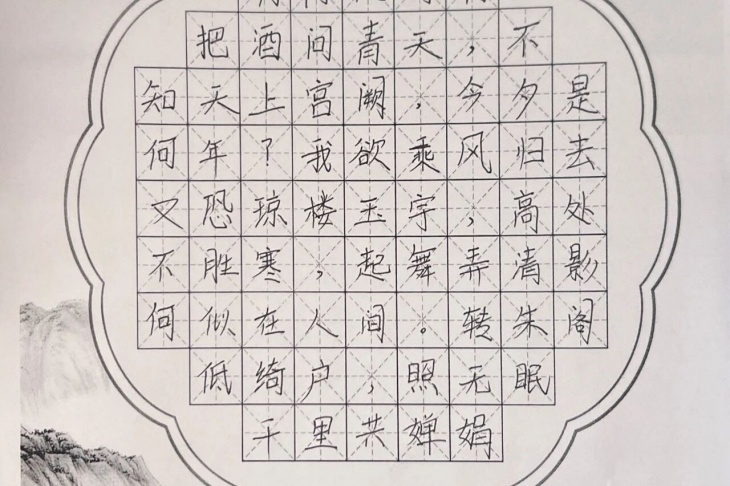 把酒问青天，不
知天上宫阙，今夕是
何年？我欲乘风归去
又恐琼楼玉宇，高处
不胜寒，起舞弄清影
何似在人间。转朱阁
低绮户，照无眠
千里共婵娟